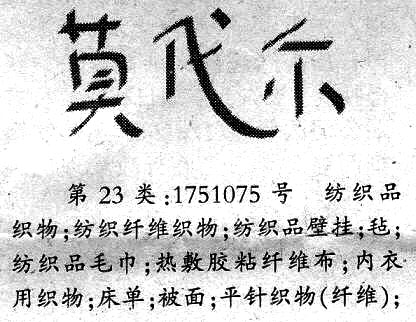 莫代尔
第23类:1751075号 纺织品
织物;纺织纤维织物;纺织品壁挂;毡;
纺织品毛巾;热敷胶粘纤维布;内衣
用织物;床单;被面;平针织物(纤维);